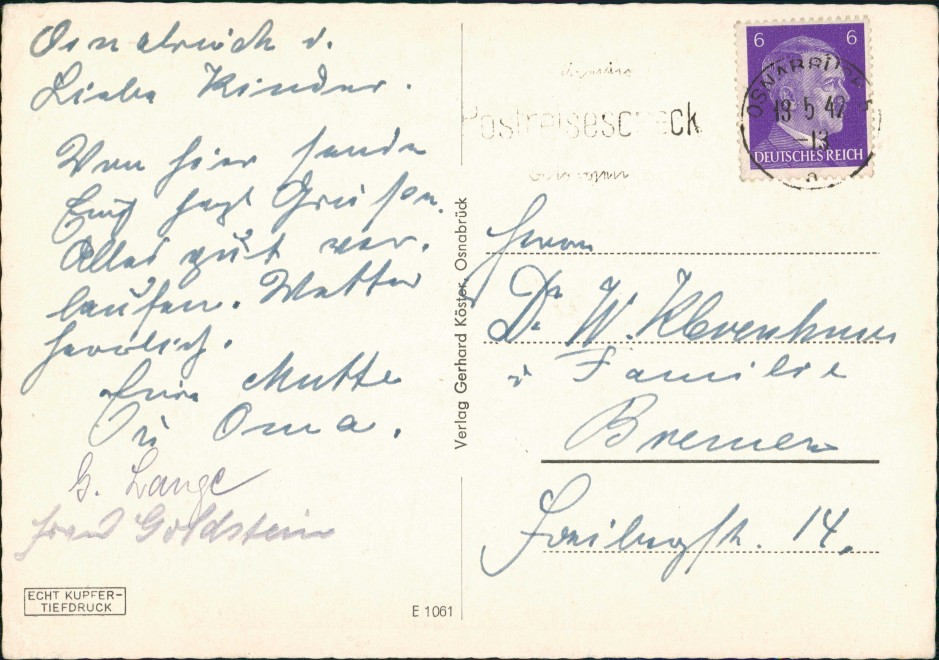 Osnabrück d.
Liebe Kinder.
Von hier sende
Euch herzl Grüße.
Alles gut ver-
laufen. Wetter
herrlich.
Eure Mutter
u Oma.
G. Lange
Goldstein
ECHT KUPFER-
TIEFDRUCK
E 1061
Verlag Gerhard Köster, Osnabrück
Postreisescheck
6 6
OSNABRÜCK
13 5 42
-13
a
DEUTSCHES REICH
Herrn
Dr. W.
u Familie
Bremen
14.